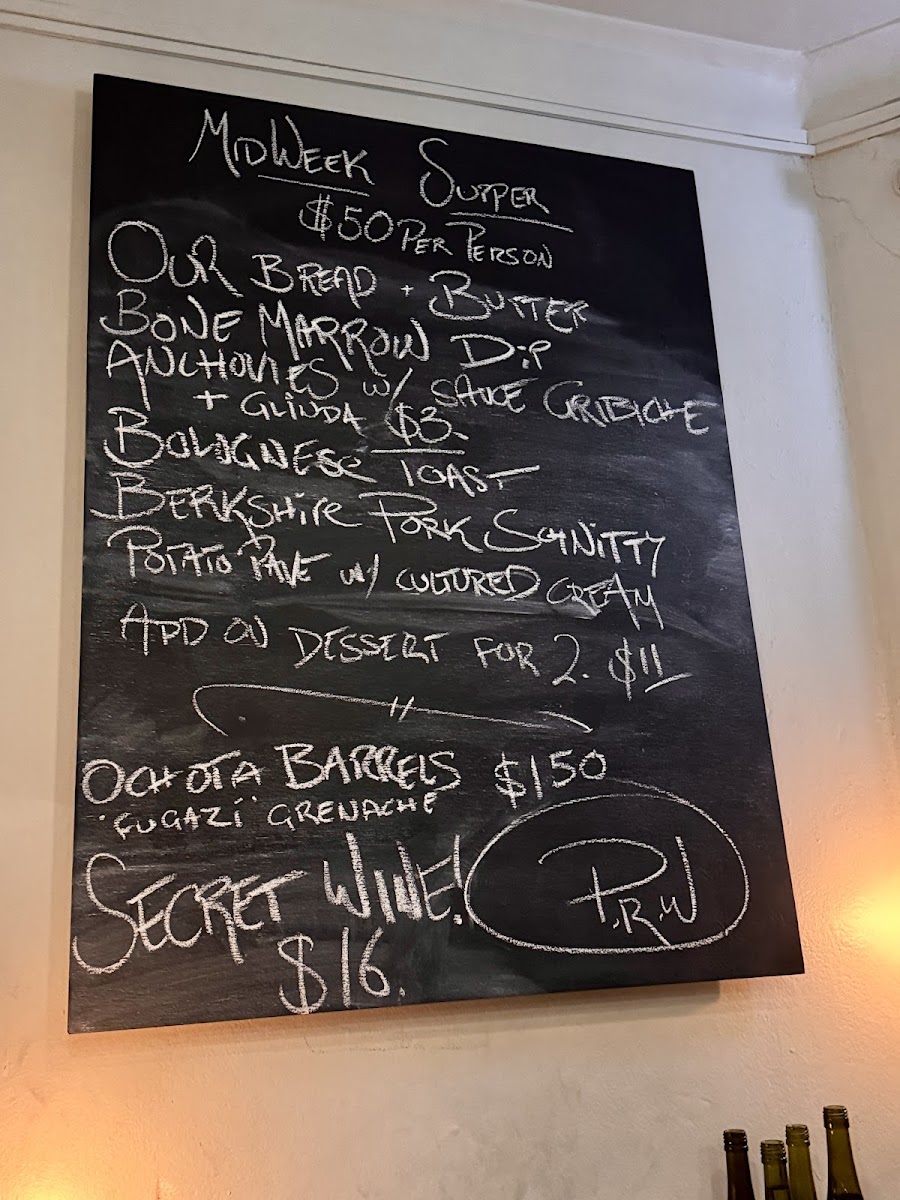 MIDWEEK SUPPER
$50 PER PERSON
OUR BREAD + BUTTER
BONE MARROW DIP
ANCHOVIES W/ SAUCE GRIBICHE
+ GLINDA $3.
BOLOGNESE TOAST
BERKSHIRE PORK SCHNITTY
POTATO PAVE W/ CULTURED CREAM
ADD ON DESSERT FOR 2. $11
OCHOTA BARRELS $150
'FUGAZI' GRENACHE
SECRET WINE!
$16.
P.R.W